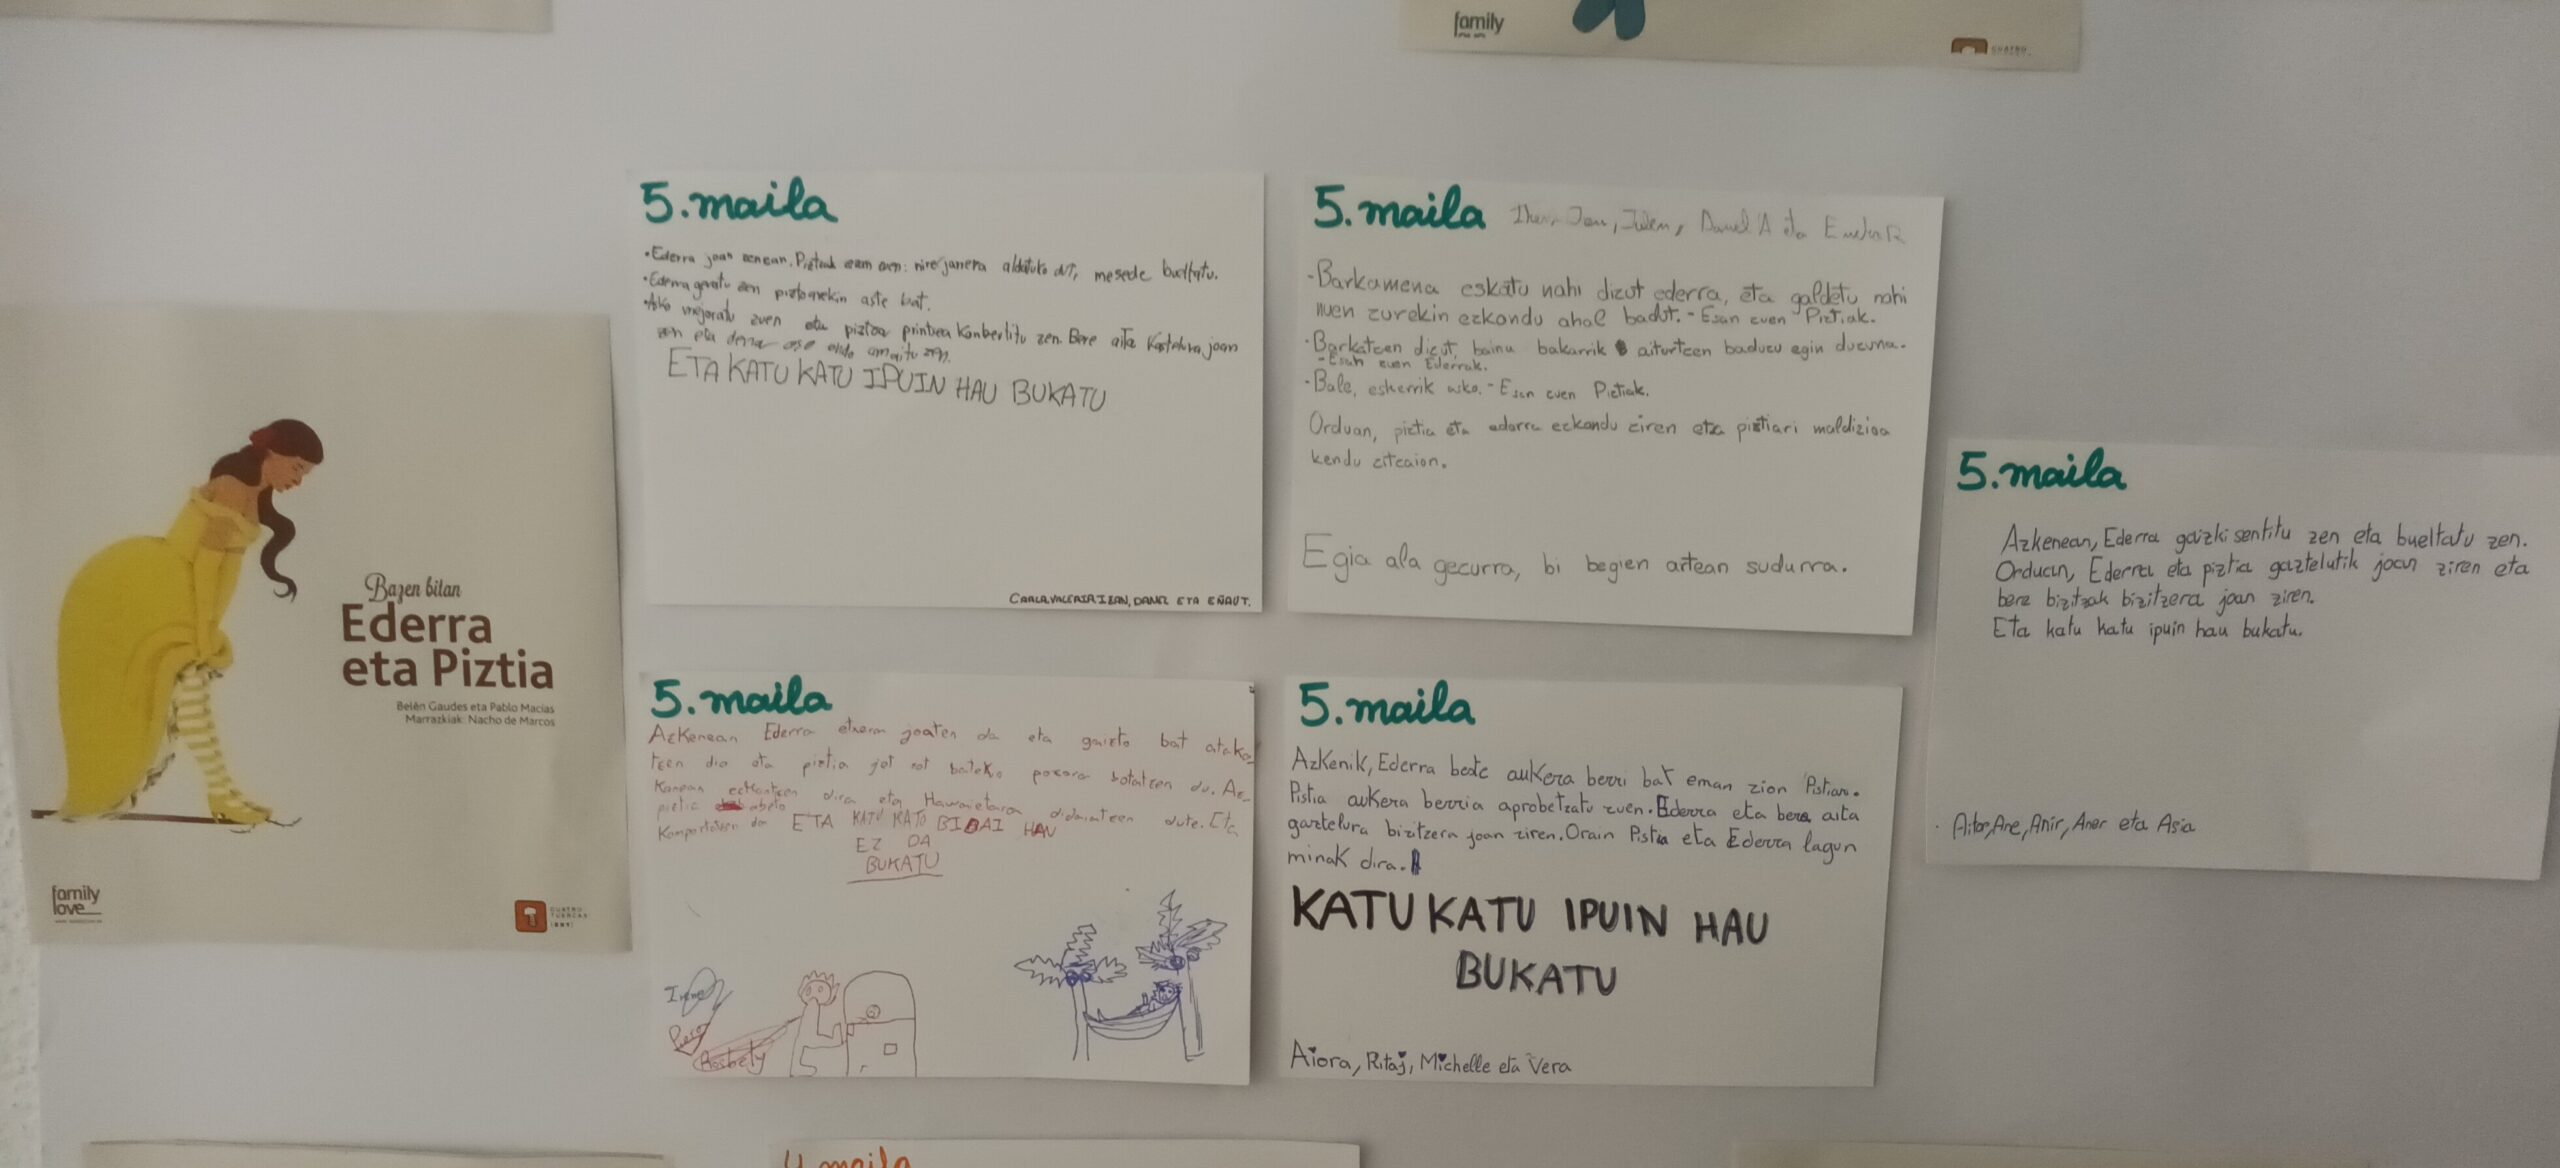 family
CUATRO
Bazen bitan
Ederra
eta Piztia
Belén Gaudes eta Pablo Macías
Marrazkiak: Nacho de Marcos
family
love
CUATRO
TUERCAS
5. maila
• Ederra joan zenean, Piztiak esan zuen: nire janera aldatuko dut, mesede bueltatu.
• Ederra geratu zen piztiarekin aste bat.
• Asko mejoratu zuen eta piztia printzea konbertitu zen. Bere aita kastelura joan
zen eta dena oso ondo amaitu zen.
ETA KATU KATU IPUIN HAU BUKATU
CARLA, VALERIA, IZAN, DANEL ETA EÑAUT.
5. maila
Iker, Jon, Julen, Danel A eta Eneko R
- Barkamena eskatu nahi dizut ederra, eta galdetu nahi
nuen zurekin ezkondu ahal badut. - Esan zuen Piztiak.
- Barkatzen dizut, baina bakarrik aiturtzen baduzu egin duzuna.
- Esan zuen Ederrak.
- Bale, eskerrik asko. - Esan zuen Piztiak.
Orduan, piztia eta ederra ezkondu ziren eta piztiari maldizioa
kendu zitzaion.
Egia ala gezurra, bi begien artean sudurra.
5. maila
Azkenean, Ederra gaizki sentitu zen eta bueltatu zen.
Orduan, Ederra eta piztia gaztelutik joan ziren eta
bere bizitzak bizitzera joan ziren.
Eta katu katu ipuin hau bukatu.
Aitor, Ane, Anir, Aner eta Asia
5. maila
Azkenean Ederra etxera joaten da eta gaizto bat ataka-
tzen dio eta piztia jot sot bateko pozora botatzen du. Az-
kenean ezkontzen dira eta Hawaietara bidaiatzen dute. Eta
piztia hobeto
konportatzen da ETA KATU KATU BIDAI HAU
EZ DA
BUKATU
Irene
Piero
Rosbely
5. maila
Azkenik, Ederra beste aukera berri bat eman zion Pistiari.
Pistia aukera berria aprobetzatu zuen. Ederra eta bere aita
gaztelura bizitzera joan ziren. Orain Pistia eta Ederra lagun
minak dira.
KATU KATU IPUIN HAU
BUKATU
Aiora, Ritaj, Michelle eta Vera
4. maila